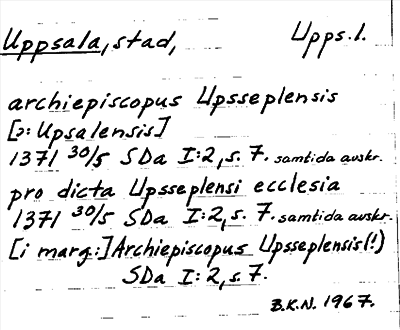 Uppsala, stad, Upps.l.
archiepiscopus Upsseplensis
[ɔ: Upsalensis]
1371 30/5 SDa I:2, s. 7. samtida avskr.
pro dicta Upsseplensi ecclesia
1371 30/5 SDa I:2, s. 7. samtida avskr.
[i marg.:] Archiepiscopus Upsseplensis(!)
SDa I:2, s. 7.
B.K.N. 1967.